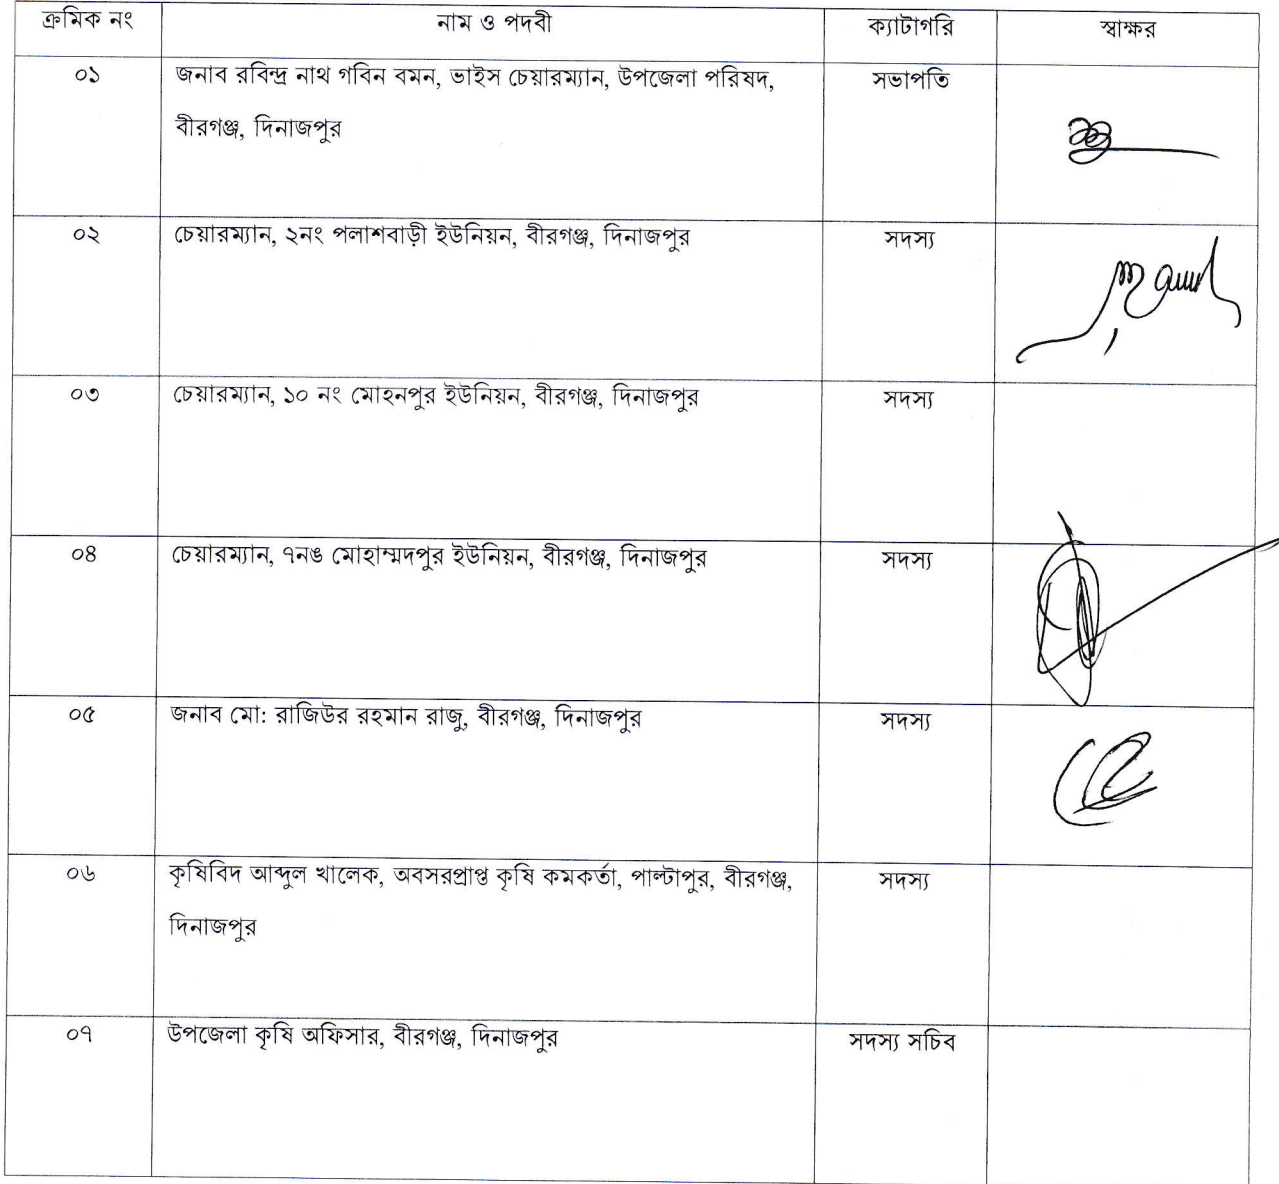 ক্রমিক নং নাম ও পদবী ক্যাটাগরি স্বাক্ষর
০১ জনাব রবিন্দ্র নাথ গবিন বমন, ভাইস চেয়ারম্যান, উপজেলা পরিষদ, সভাপতি
বীরগঞ্জ, দিনাজপুর
০২ চেয়ারম্যান, ২নং পলাশবাড়ী ইউনিয়ন, বীরগঞ্জ, দিনাজপুর সদস্য
০৩ চেয়ারম্যান, ১০ নং মোহনপুর ইউনিয়ন, বীরগঞ্জ, দিনাজপুর সদস্য
০৪ চেয়ারম্যান, ৭নঙ মোহাম্মদপুর ইউনিয়ন, বীরগঞ্জ, দিনাজপুর সদস্য
০৫ জনাব মো: রাজিউর রহমান রাজু, বীরগঞ্জ, দিনাজপুর সদস্য
০৬ কৃষিবিদ আব্দুল খালেক, অবসরপ্রাপ্ত কৃষি কমকর্তা, পাল্টাপুর, বীরগঞ্জ, সদস্য
দিনাজপুর
০৭ উপজেলা কৃষি অফিসার, বীরগঞ্জ, দিনাজপুর সদস্য সচিব